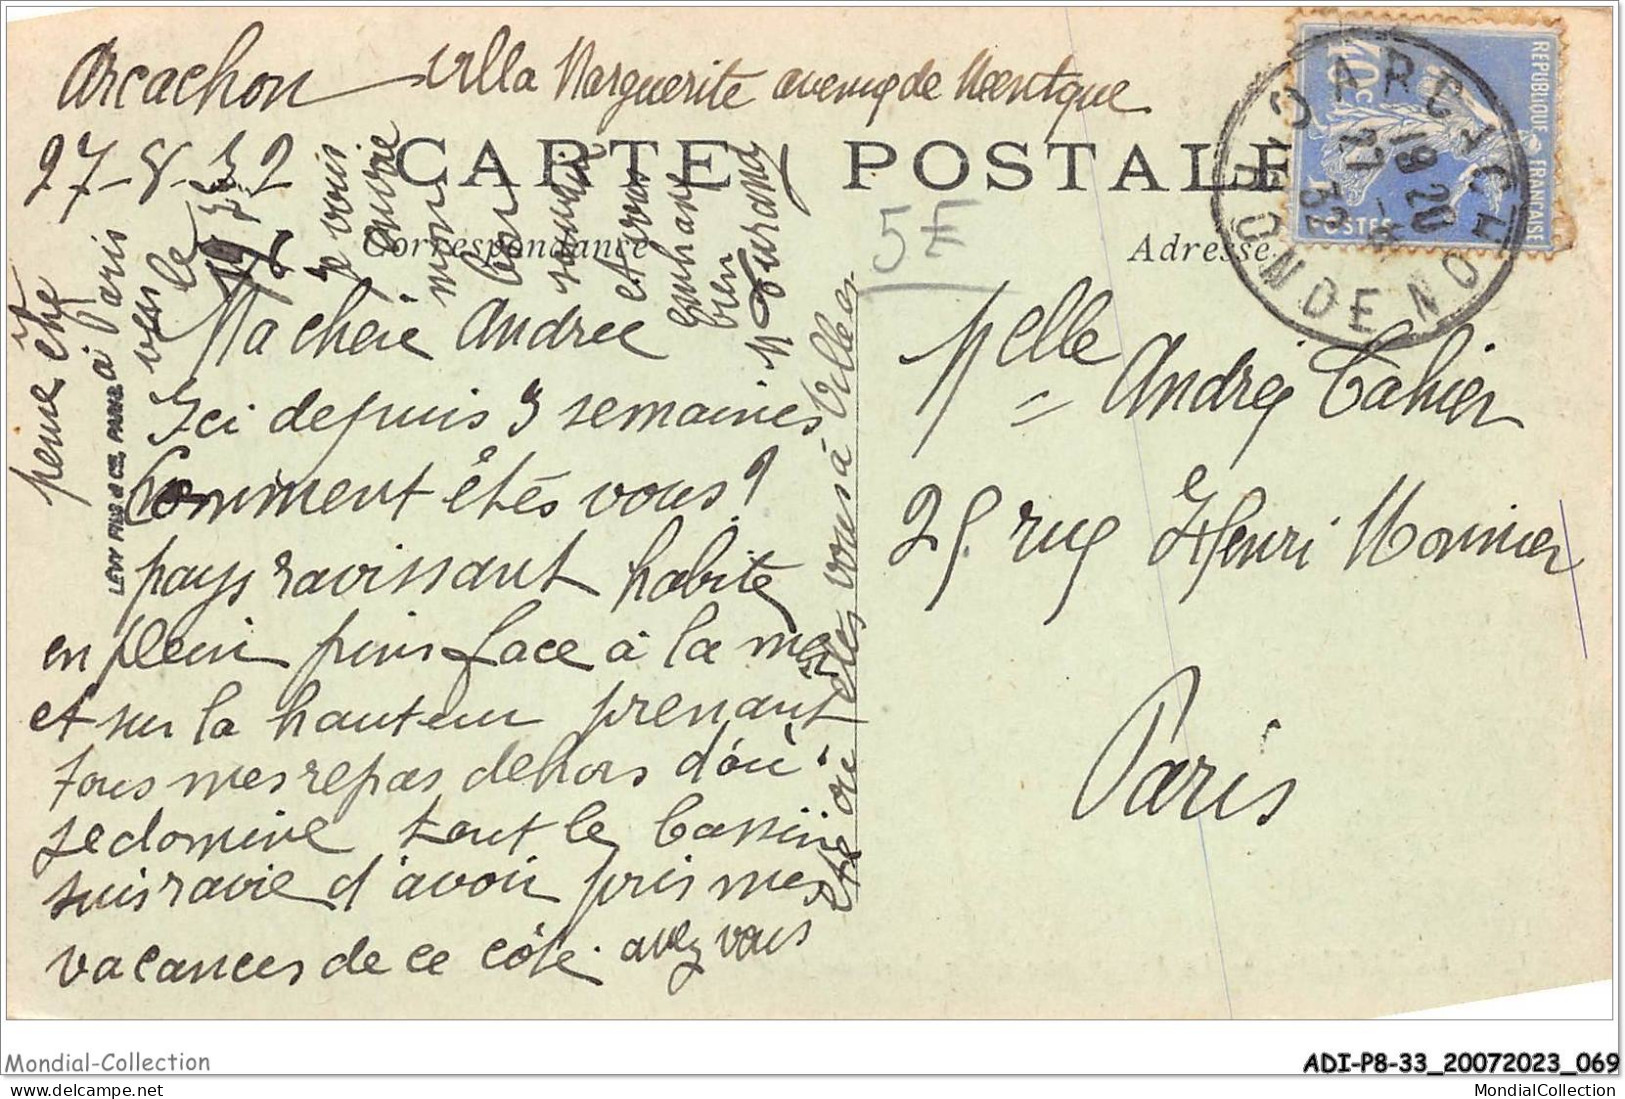 Arcachon Villa Marguerite avenue de
27-8-32
CARTE POSTALE
Correspondance
Adresse
5E
REPUBLIQUE FRANÇAISE
40c
POSTES
ARCACHON
19 20
27 -8
32
GIRONDE
Ma chère Andrée
Ici depuis 3 semaines
Comment êtes vous?
pays ravissant habite
en plein pins face à la mer
et sur la hauteur prenant
tous mes repas dehors d'où
je domine tout le bassin
suis ravie d'avoir pris mes
vacances de ce côté. avez vous
été ou êtes vous à Villers
à Paris
vers le
je vous
mon
bon
souvenir
et vous
embrasse
bien
LEVY FILS & CIE, PARIS
Melle Andrée Cahier
25 rue Henri Monnier
Paris
Mondial-Collection
ADI-P8-33_20072023_069
delcampe.net
MondialCollection